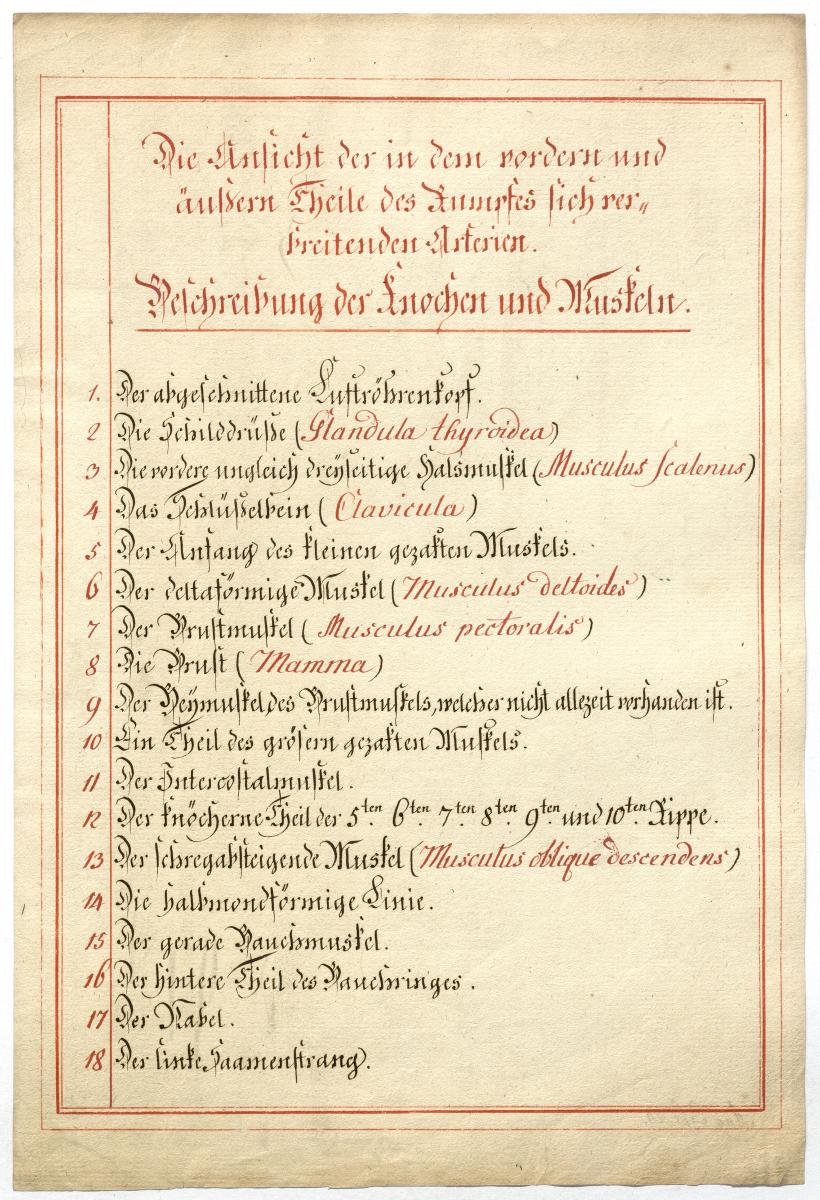 Die Ansicht der in dem vordern und
äußern Theile des Rumpfes sich ver„
breitenden Arterien.
Beschreibung der Knochen und Muskeln.
1. Der abgeschnittene Luftröhrenkopf.
2 Die Schilddrüße (Glandula thyroidea)
3 Die vordere ungleich dreyseitige Halsmuskel (Musculus scalenus)
4 Das Schlüßelbein (Clavicula)
5 Der Anfang des kleinen gezakten Muskels.
6 Der deltaförmige Muskel (Musculus deltoides)
7 Der Brustmuskel (Musculus pectoralis)
8 Die Brust (Mamma)
9 Der Beÿmuskel des Brustmuskels, welcher nicht allezeit vorhanden ist.
10 Ein Theil des grösern gezakten Muskels.
11 Der Intercostalmuskel.
12 Der knöcherne Theil der 5ten. 6ten. 7ten 8ten. 9ten und 10ten Rippe.
13 Der schregabsteigende Muskel (Musculus oblique descendens)
14 Die halbmondförmige Linie.
15 Der gerade Bauchmuskel.
16 Der hintere Theil des Bauchringes.
17 Der Nabel.
18 Der linke Saamenstrang.